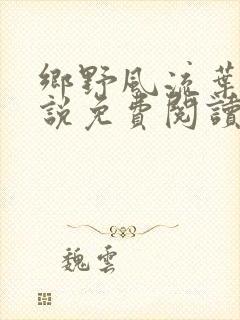 鄉野風流葉
說免費閱讀
魏雲